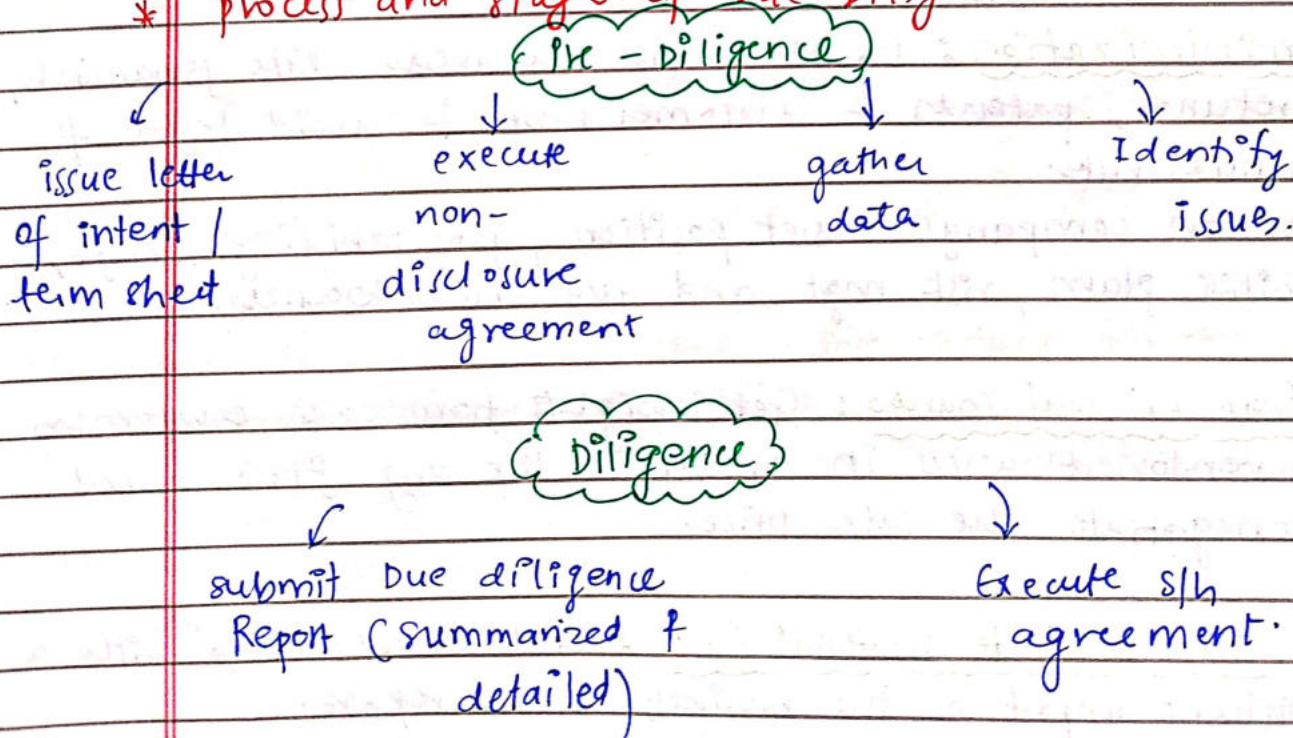 * process and stages of due dilig
Pre - Diligence
issue letter
of intent /
term sheet
execute
non-
disclosure
agreement
gather
data
Identify
issues.
Diligence
submit Due diligence
Report (summarized &
detailed)
Execute s/h
agreement.